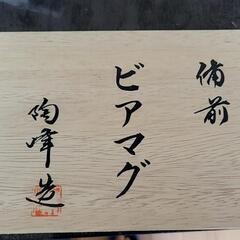 備前
ビアマグ
陶峰造